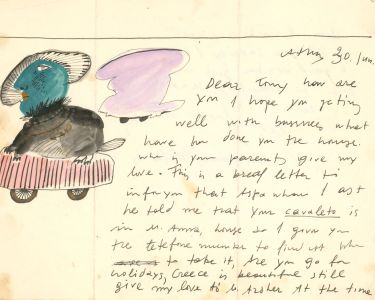 Athens 30. Jan.
Dear Tony how are
you I hope you getting
well with business what
have you done you the house.
who is your parents give my
love. This is a breaf letter to
inform you that Aspa whom I ask
he told me that your cavaleto is
in M. Anna, house so I given you
the telefone number to find out when
to take it, Are you go for
holidays, Greece is beautiful still
give my love to At the time